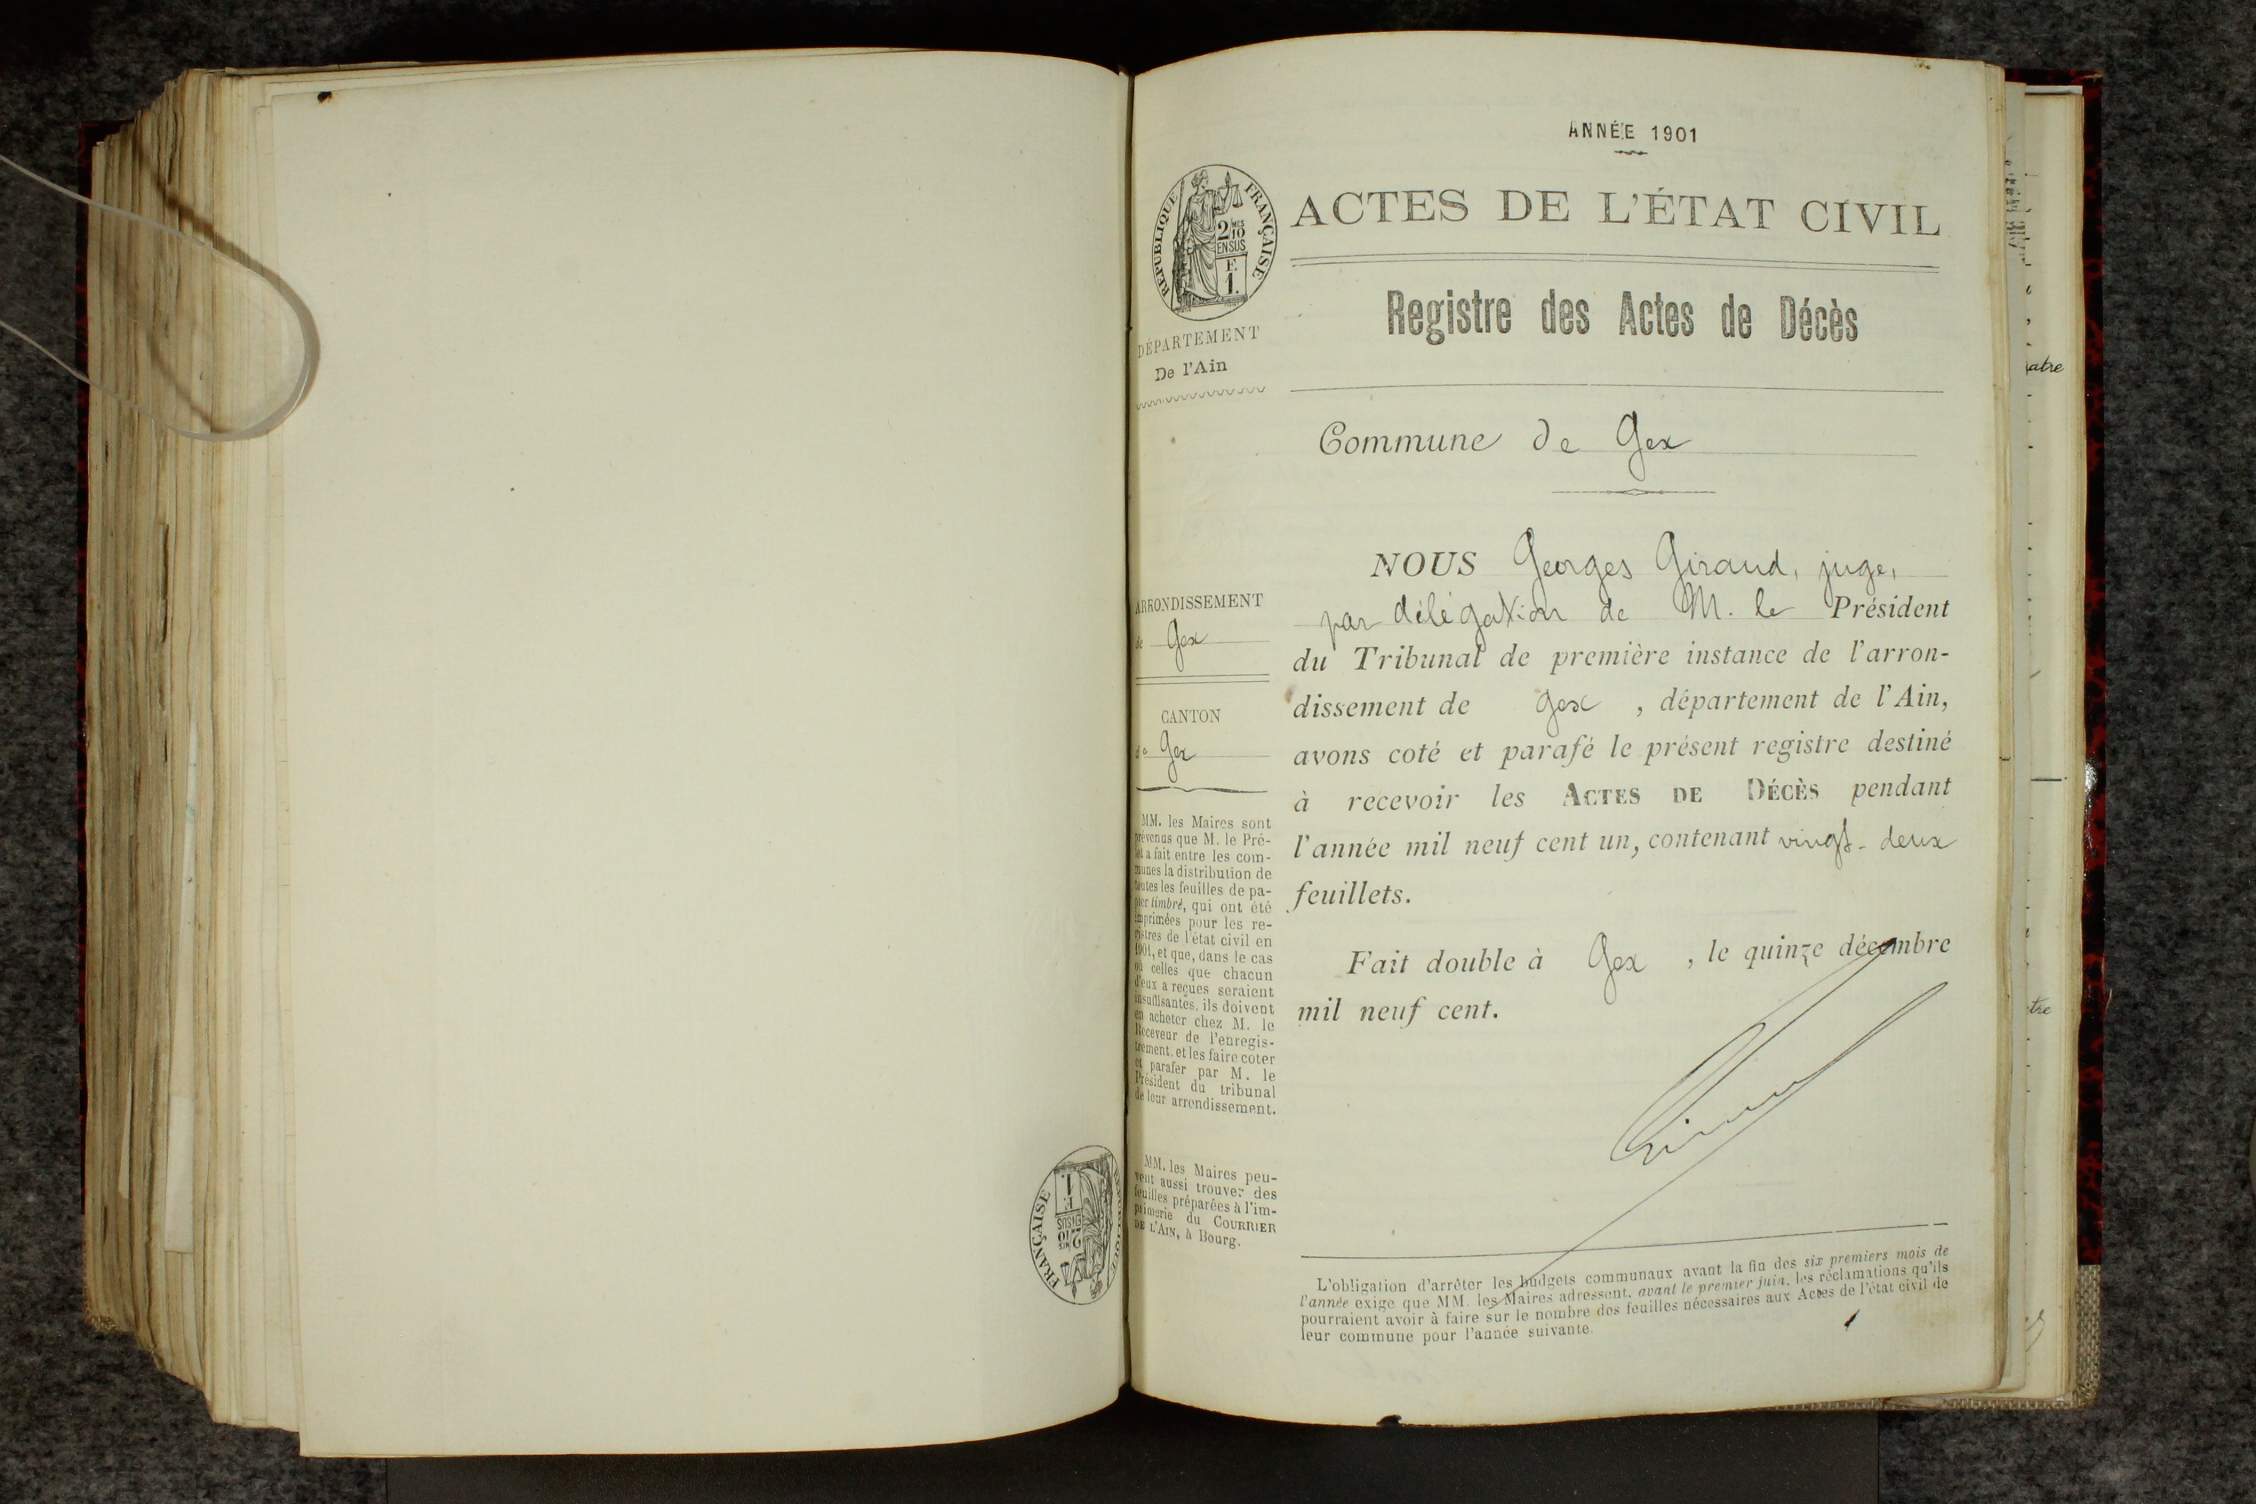 ANNÉE 1901
ACTES DE L'ÉTAT CIVIL
Registre des Actes de Décès
RÉPUBLIQUE FRANÇAISE
2 10
MES
EN SUS
F.
1.
DÉPARTEMENT
De l'Ain
Commune de Gex
ARRONDISSEMENT
de Gex
CANTON
de Gex
MM. les Maires sont
prévenus que M. le Pré-
fet a fait entre les com-
munes la distribution de
toutes les feuilles de pa-
pier timbré, qui ont été
imprimées pour les re-
gistres de l'état civil en
1901, et que, dans le cas
où celles que chacun
d'eux a reçues seraient
insuffisantes, ils doivent
en acheter chez M. le
Receveur de l'enregis-
trement, et les faire coter
et parafer par M. le
Président du tribunal
de leur arrondissement.
MM. les Maires peu-
vent aussi trouver des
feuilles préparées à l'im-
primerie du COURRIER
DE L'AIN, à Bourg.
NOUS Georges Giraud, juge,
par délégation de M. le Président
du Tribunal de première instance de l'arron-
dissement de Gex , département de l'Ain,
avons coté et parafé le présent registre destiné
à recevoir les ACTES DE DÉCÈS pendant
l'année mil neuf cent un, contenant vingt-deux
feuillets.
Fait double à Gex , le quinze décembre
mil neuf cent.
L'obligation d'arrêter les budgets communaux avant la fin des six premiers mois de
l'année exige que MM. les Maires adressent, avant le premier juin, les réclamations qu'ils
pourraient avoir à faire sur le nombre des feuilles nécessaires aux Actes de l'état civil de
leur commune pour l'année suivante.
FRANÇAISE
2 10
EN SUS
F.
1.
atre
tre